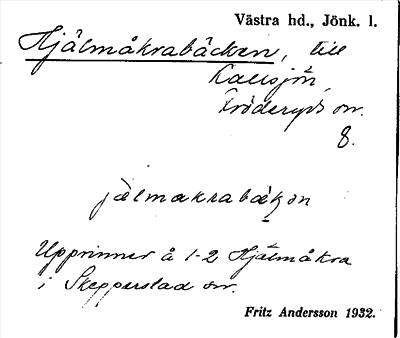 Västra hd., Jönk. l.
Hjälmåkrabäcken, till
Kallsjön,
Fröderyds sn.
8.
jälmakrabäkən
Upprinner å 1-2 Hjälmåkra
i Skepperstad sn.
Fritz Andersson 1932.